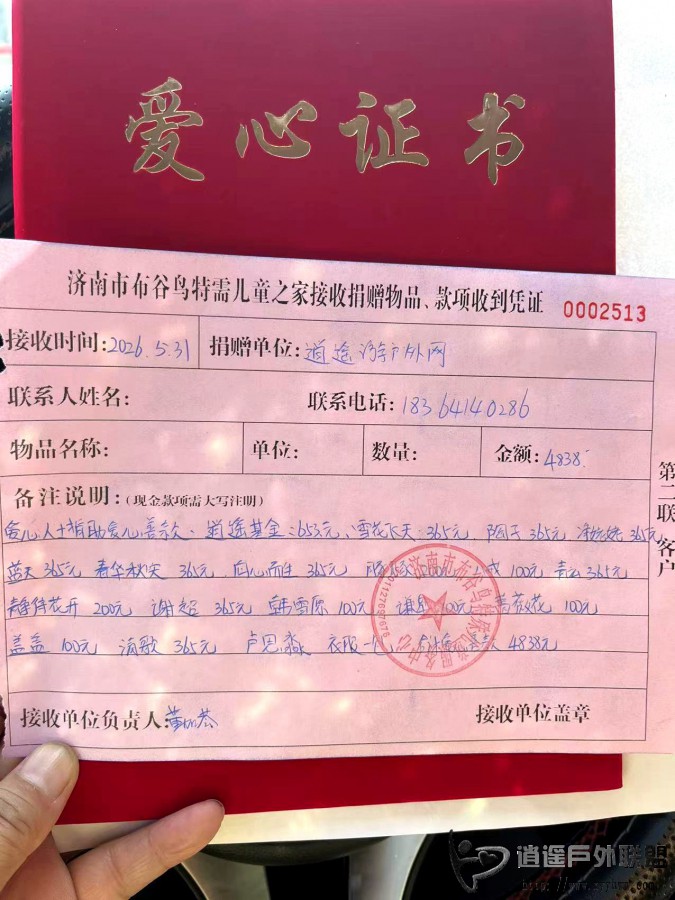 爱心证书
济南市布谷鸟特需儿童之家接收捐赠物品、款项收到凭证 0002513
接收时间:2026.5.31 捐赠单位:逍遥户外网
联系人姓名: 联系电话:18364140286
物品名称: 单位: 数量: 金额:4838
备注说明:(现金款项需大写注明)
爱心人士捐助爱心善款:逍遥基金:653元、雪花飞天:365元 365元 365元
蓝天365元 春华秋实 365元 由心而生 365元 200元 100元 青云365元
静待花开 200元 谢超 365元 韩雪原 100元 100元 蔷薇花 100元
盖盖 100元 渔歌 365元 卢思淼 衣服一包 4838元
接收单位负责人: 接收单位盖章
第二联 客户
济南市布谷鸟特需儿童
逍遥戶外联盟